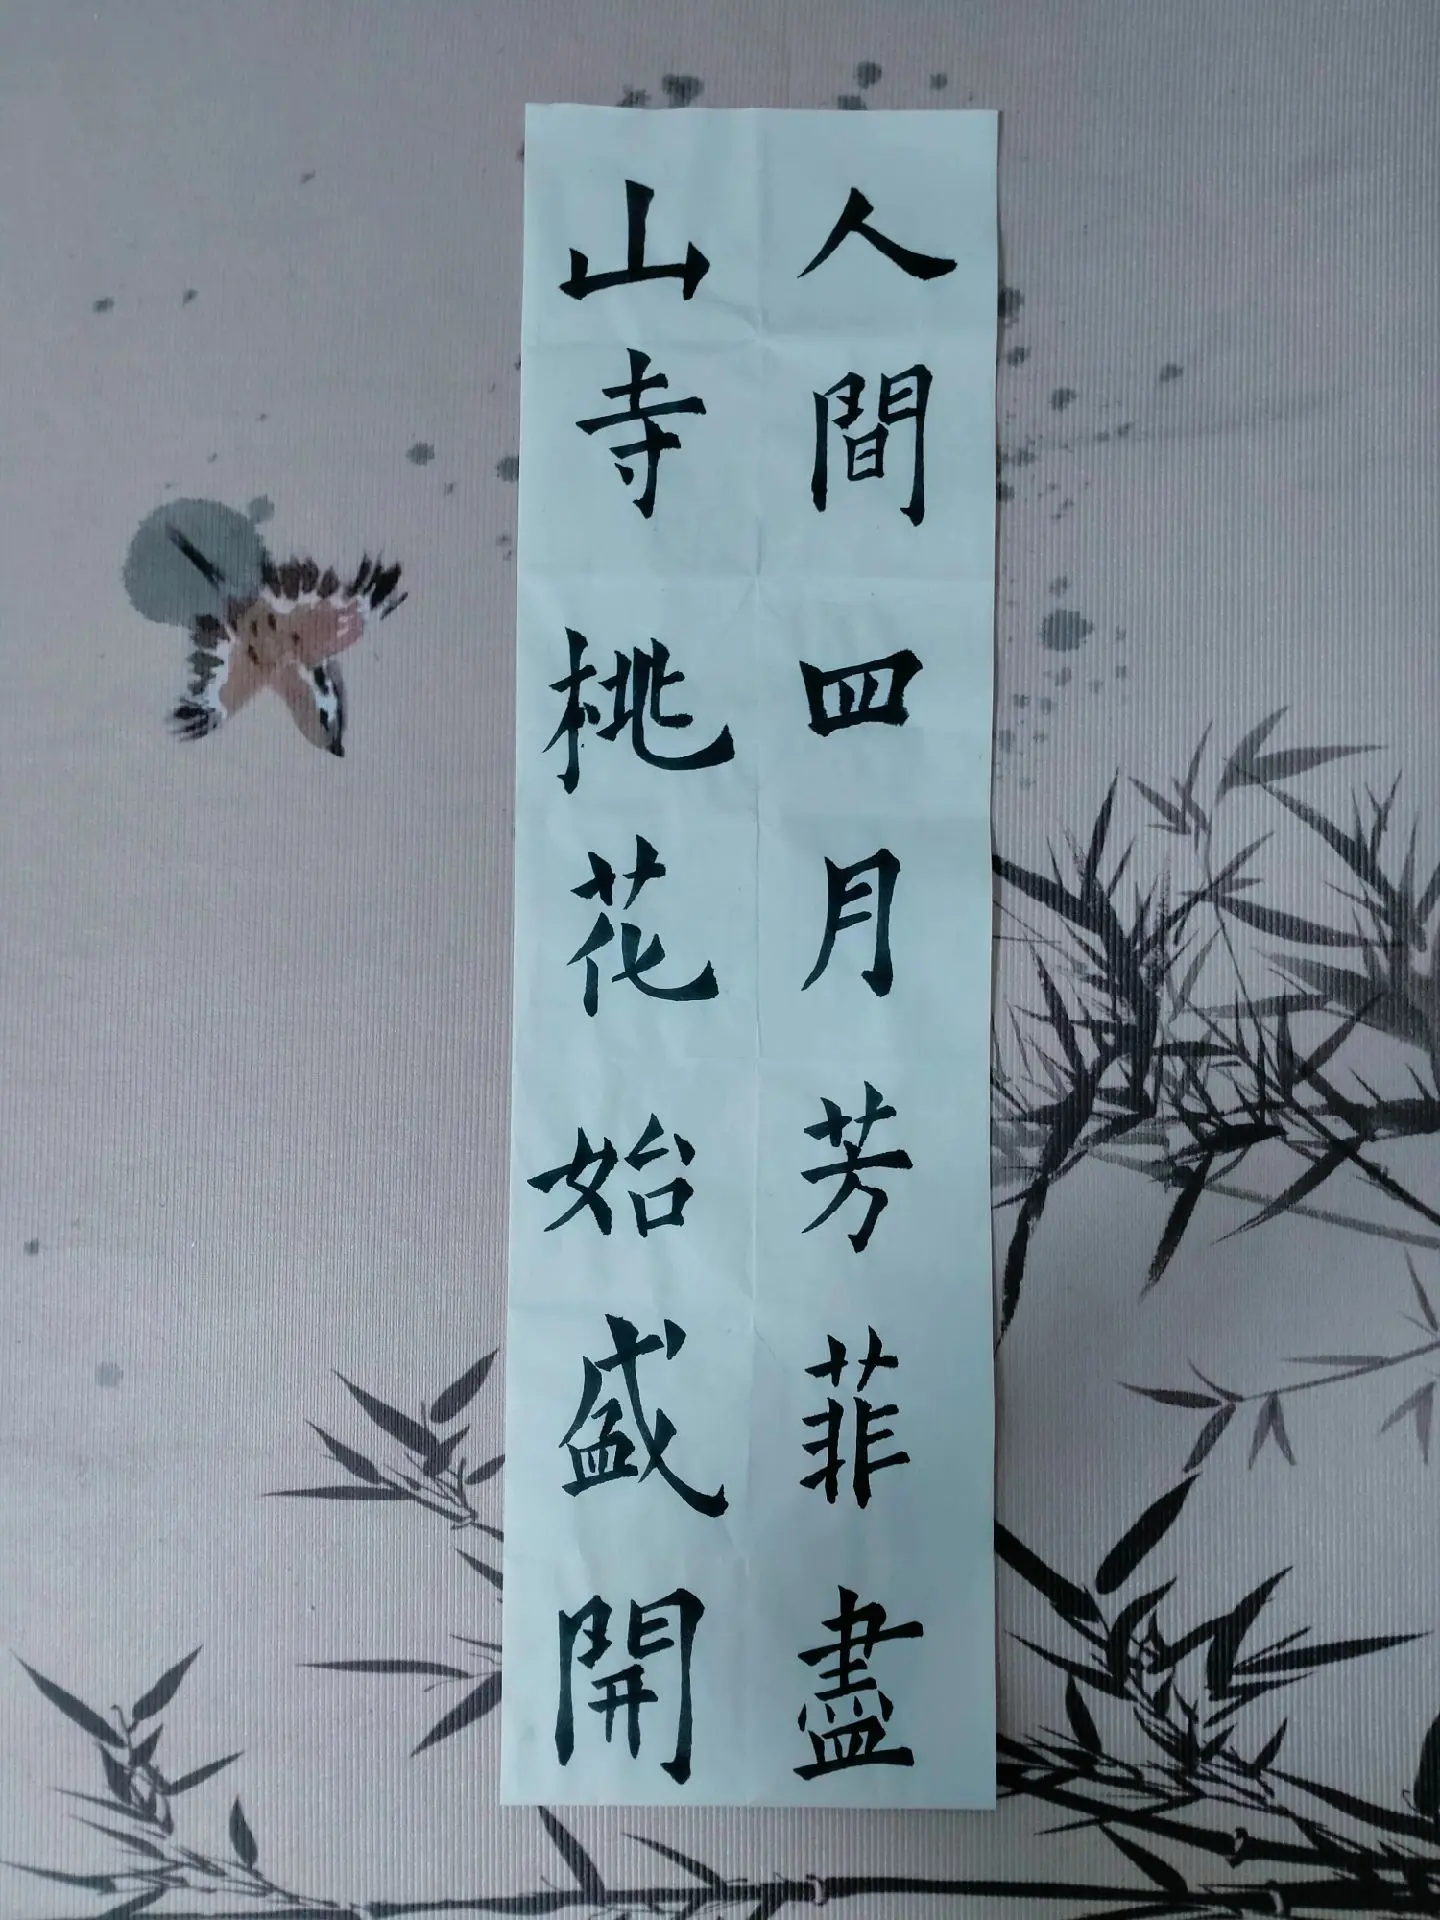 人間四月芳菲盡
山寺桃花始盛開